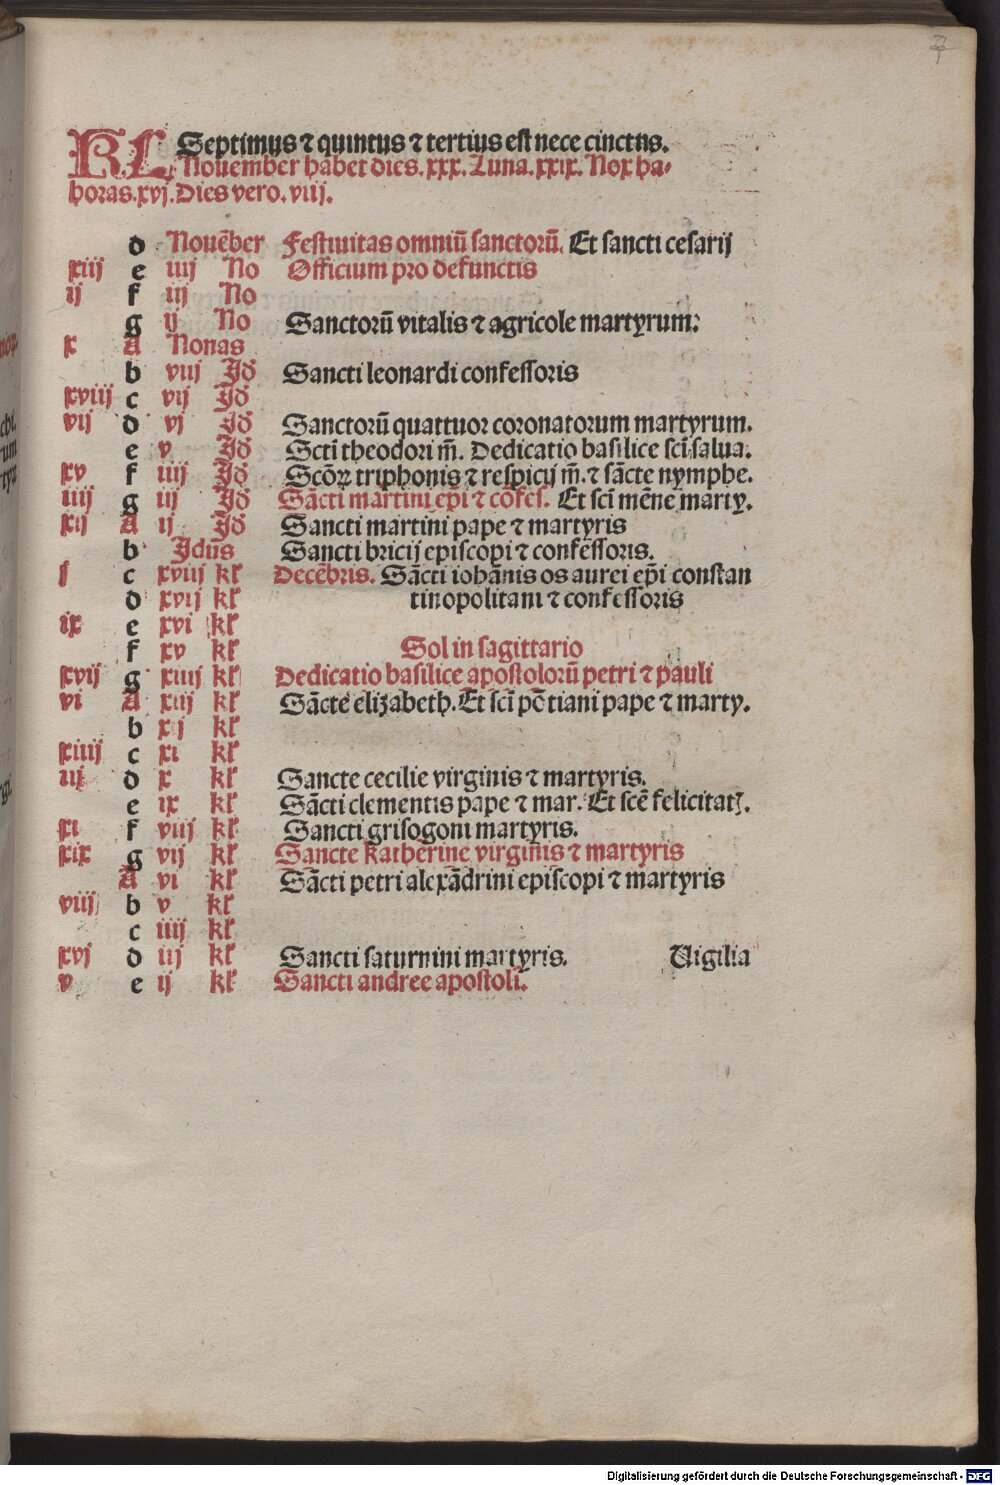 7
KL Septimus ⁊ quintus ⁊ tertius est nece cinctus.
Nouember habet dies. xxx. Luna. xxix. Nox ha-
horas. xvj. Dies vero. viij.
d Nouẽber Festiuitas omniũ sanctorũ. Et sancti cesarij
xiij e iiij No Officium pro defunctis
ij f iij No
g ij No Sanctorũ vitalis ⁊ agricole martyrum:
x A Nonas
b viij Jd Sancti leonardi confessoris
xviij c vij Jd
vij d vj Jd Sanctorũ quattuor coronatorum martyrum.
e v Jd Scti theodori m̃. Dedicatio basilice sci salua.
xv f iiij Jd Scõꝝ triphonis ⁊ respicij m̃. ⁊ sãcte nymphe.
iiij g iij Jd Sãcti martini ep̃i ⁊ cõfes. Et sci mẽne marty.
xij A ij Jd Sancti martini pape ⁊ martyris
b Jdus Sancti bricij episcopi ⁊ confessoris.
j c xviij kl Decẽbris. Sãcti iohãnis os aurei ep̃i constan
d xvij kl tinopolitani ⁊ confessoris
ix e xvi kl
f xv kl Sol in sagittario
xvij g xiiij kl Dedicatio basilice apostolorũ petri ⁊ pauli
vi A xiij kl Sãcte elizabeth. Et sci põtiani pape ⁊ marty.
b xij kl
xiiij c xi kl
iij d x kl Sancte cecilie virginis ⁊ martyris.
e ix kl Sãcti clementis pape ⁊ mar. Et scẽ felicitatꝭ.
xi f viij kl Sancti grisogoni martyris.
xix g vij kl Sancte katherine virginis ⁊ martyris
A vi kl Sãcti petri alexãdrini episcopi ⁊ martyris
viij b v kl
c iiij kl
xvj d iij kl Sancti saturnini martyris. Vigilia
v e ij kl Sancti andree apostoli.
Digitalisierung gefördert durch die Deutsche Forschungsgemeinschaft - DFG